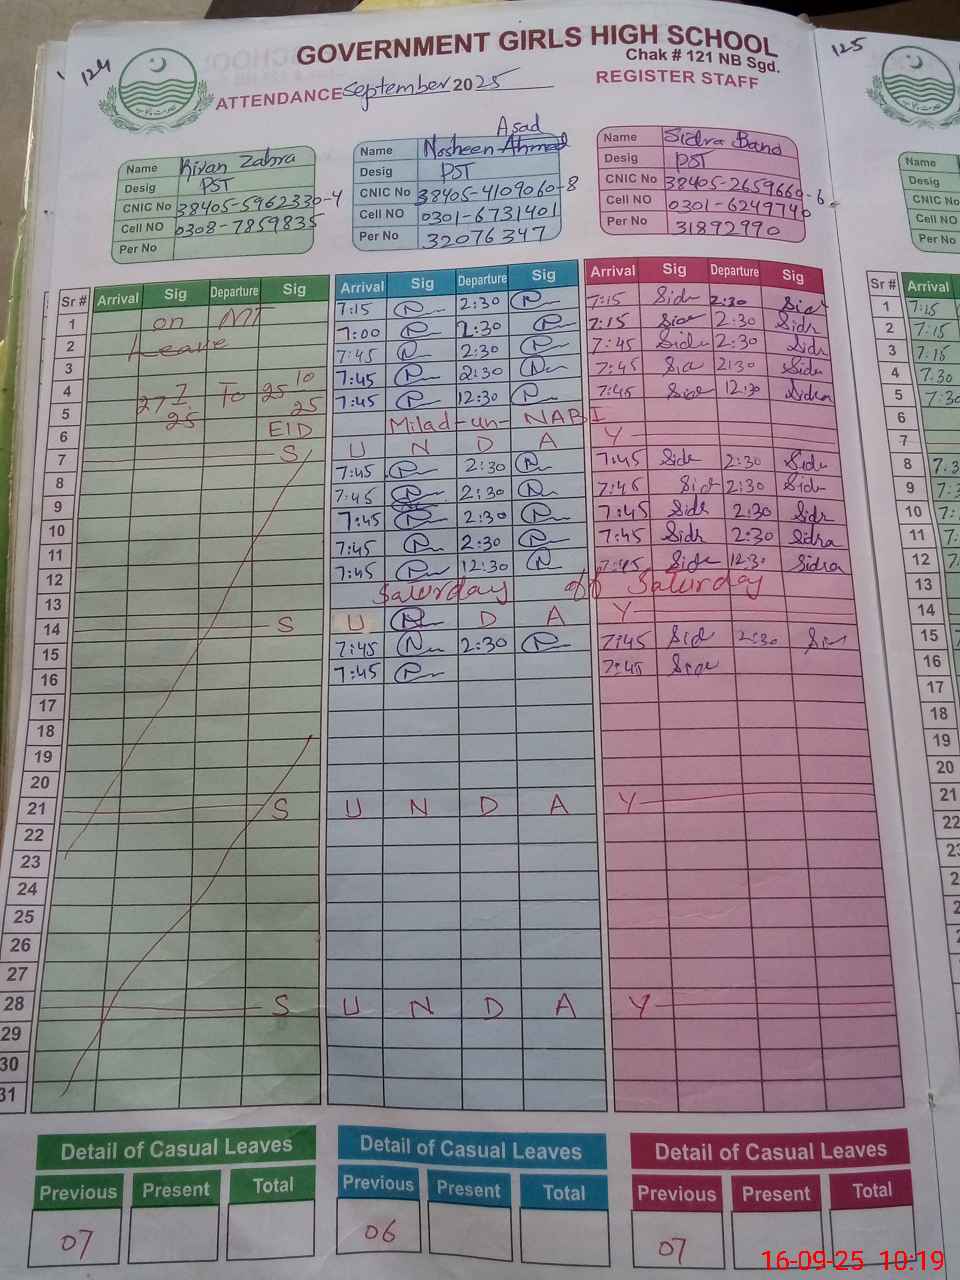 124
GOVERNMENT GIRLS HIGH SCHOOL
Chak # 121 NB Sgd.
ATTENDANCE September 2025 REGISTER STAFF
125
Name Kiran Zahra
Desig PST
CNIC No 38405-5962330-4
Cell NO 0308-7859835
Per No
Asad
Name Nosheen Ahmad
Desig PST
CNIC No 38405-4109060-8
Cell NO 0301-6731401
Per No 32076347
Name Sidra Bano
Desig PST
CNIC No 38405-2659660-6
Cell NO 0301-6249740
Per No 31892990
Name
Desig
CNIC No
Cell NO
Per No
Sr # Arrival Sig Departure Sig Arrival Sig Departure Sig Arrival Sig Departure Sig Sr # Arrival
1 on 7:15 2:30 7:15 Sidr 2:30 1 7:15
2 Leave 7:00 2:30 7:15 2:30 Sidr 2 7:15
3 7:45 2:30 7:45 Sidr 2:30 Sidr 3 7:15
4 27 7 25 To 25 10 25 7:45 2:30 7:45 2:30 Sidr 4 7:30
5 7:45 12:30 7:45 12:30 Sidra 5 7:30
6 EID Milad-un-NABI 6
7 S U N D A Y 7
8 7:45 2:30 7:45 Sidr 2:30 Sidr 8 7:3
9 7:45 2:30 7:45 Sid 2:30 Sidr 9 7:3
10 7:45 2:30 7:45 Sidr 2:30 Sidr 10 7:
11 7:45 2:30 7:45 Sidr 2:30 Sidra 11 7:
12 7:45 12:30 7:45 Sidr 12:30 Sidra 12 7:
13 Saturday off Saturday 13
14 S U N D A Y 14
15 7:45 2:30 7:45 Sid 2:30 15
16 7:45 7:45 16
17 17
18 18
19 19
20 20
21 S U N D A Y 21
22 22
23 23
24 2
25 2
26 2
27
28 S U N D A Y
29
30
31
Detail of Casual Leaves Detail of Casual Leaves Detail of Casual Leaves
Previous Present Total Previous Present Total Previous Present Total
07 06 07
16-09-25 10:19